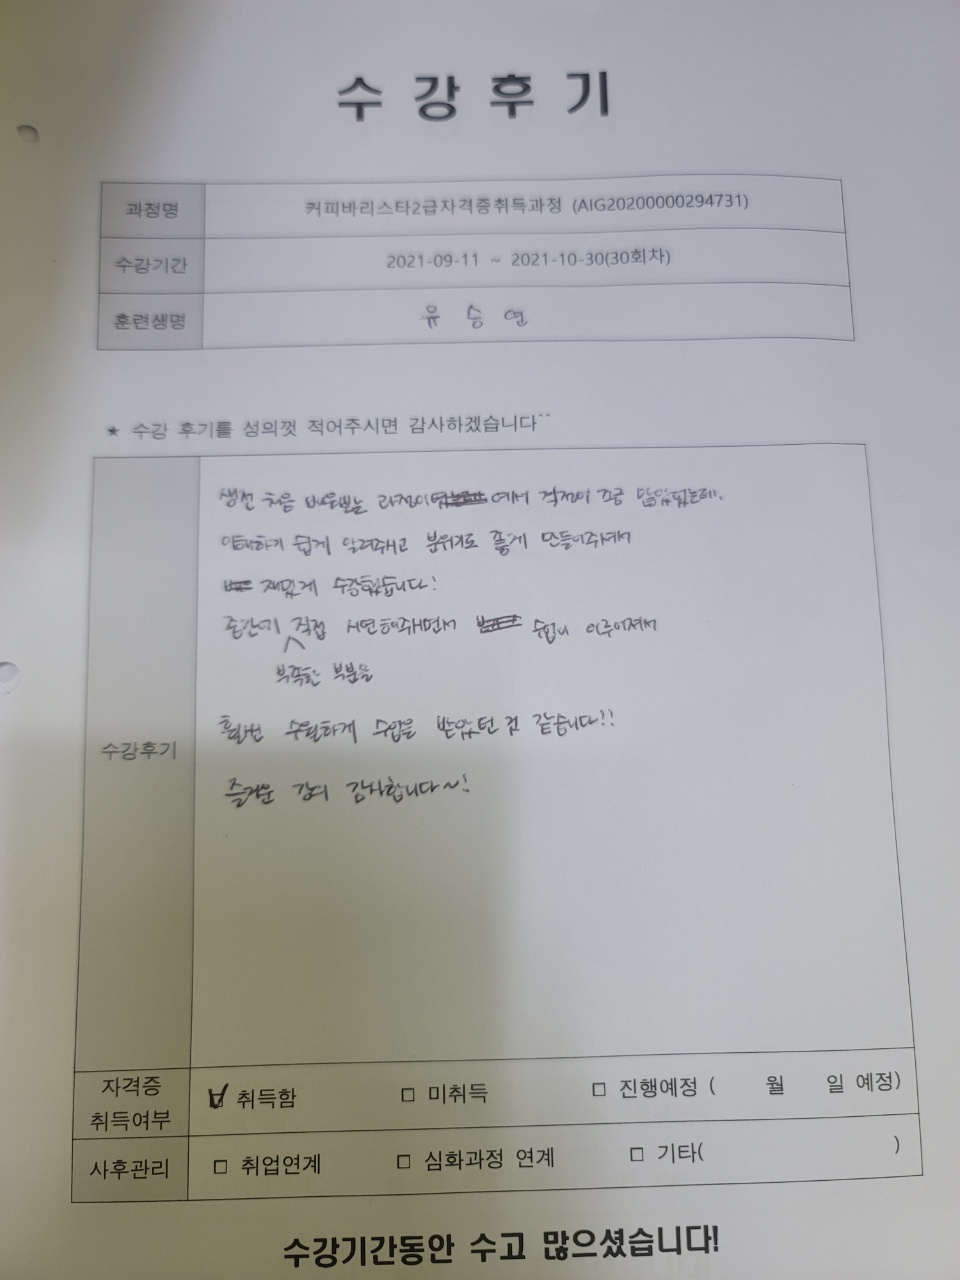 수강후기
과정명 커피바리스타2급자격증취득과정 (AIG20200000294731)
수강기간 2021-09-11 ~ 2021-10-30(30회차)
훈련생명 유승연
★ 수강 후기를 성의껏 적어주시면 감사하겠습니다^^
수강후기
생전 처음 배워보는 과정이 여서 걱정이 조금 많았었는데.
이해하기 쉽게 알려주시고 분위기도 좋게 만들어주셔서
재밌게 수강했습니다!
중간에 직접 시연해주시면서 수업이 이루어져서
부족한 부분을
훨씬 수월하게 수업을 받았던 것 같습니다!!
즐거운 강의 감사합니다~!
자격증 취득여부 ☑ 취득함 □ 미취득 □ 진행예정 ( 월 일 예정)
사후관리 □ 취업연계 □ 심화과정 연계 □ 기타( )
수강기간동안 수고 많으셨습니다!